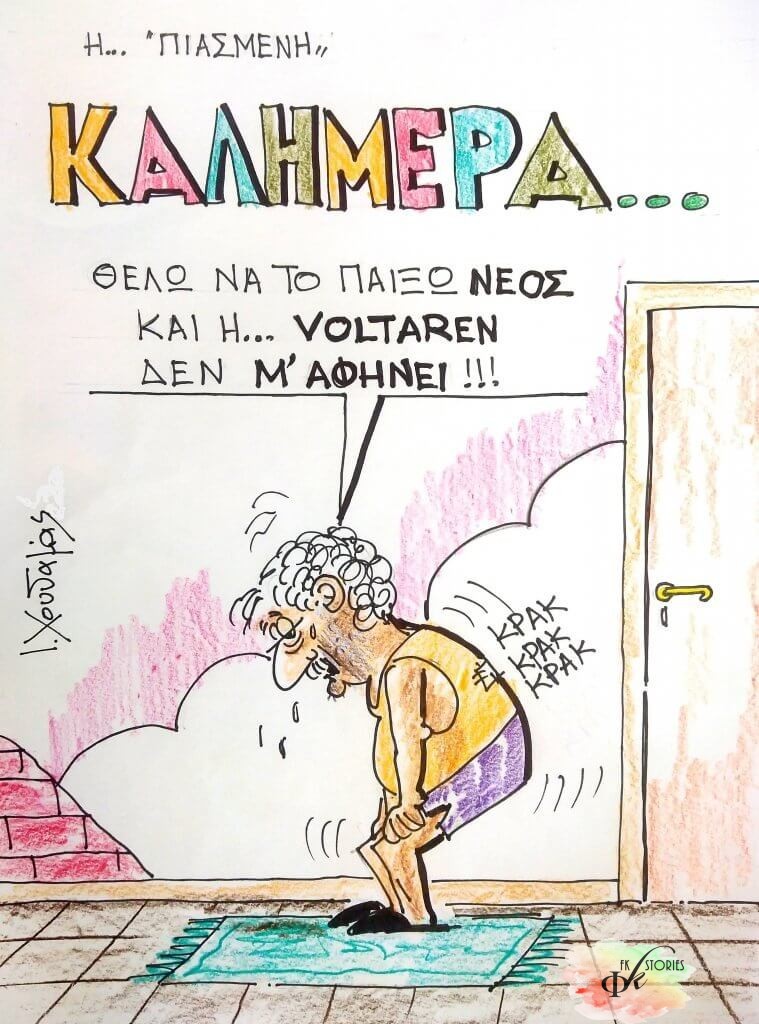 Η... "ΠΙΑΣΜΕΝΗ"
ΚΑΛΗΜΕΡΑ...
ΘΕΛΩ ΝΑ ΤΟ ΠΑΙΞΩ ΝΕΟΣ
ΚΑΙ Η... VOLTAREN
ΔΕΝ Μ' ΑΦΗΝΕΙ!!!
Ι. Χουδαλάς
ΚΡΑΚ
ΚΡΑΚ
ΚΡΑΚ
FK STORIES